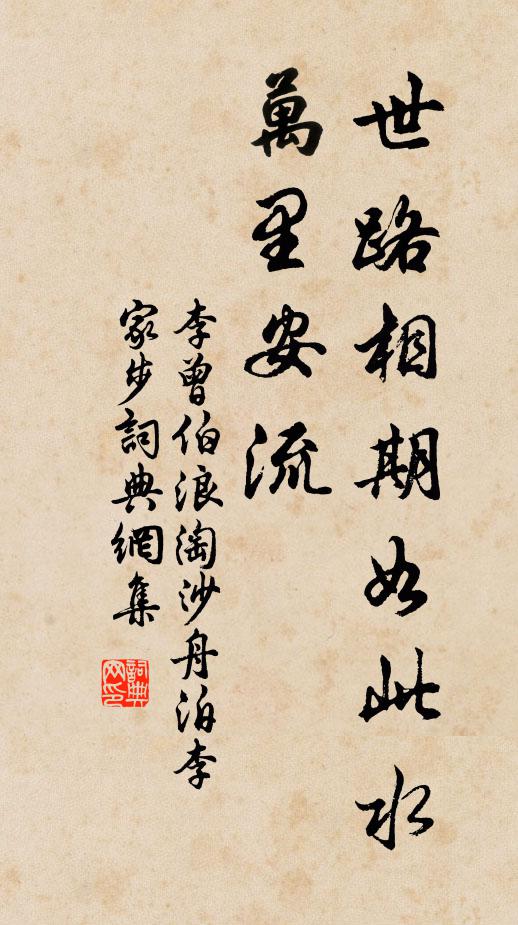 世路相期如此水
萬里安流
李曾伯浪淘沙舟泊李
家步詞典網集
詞典网印